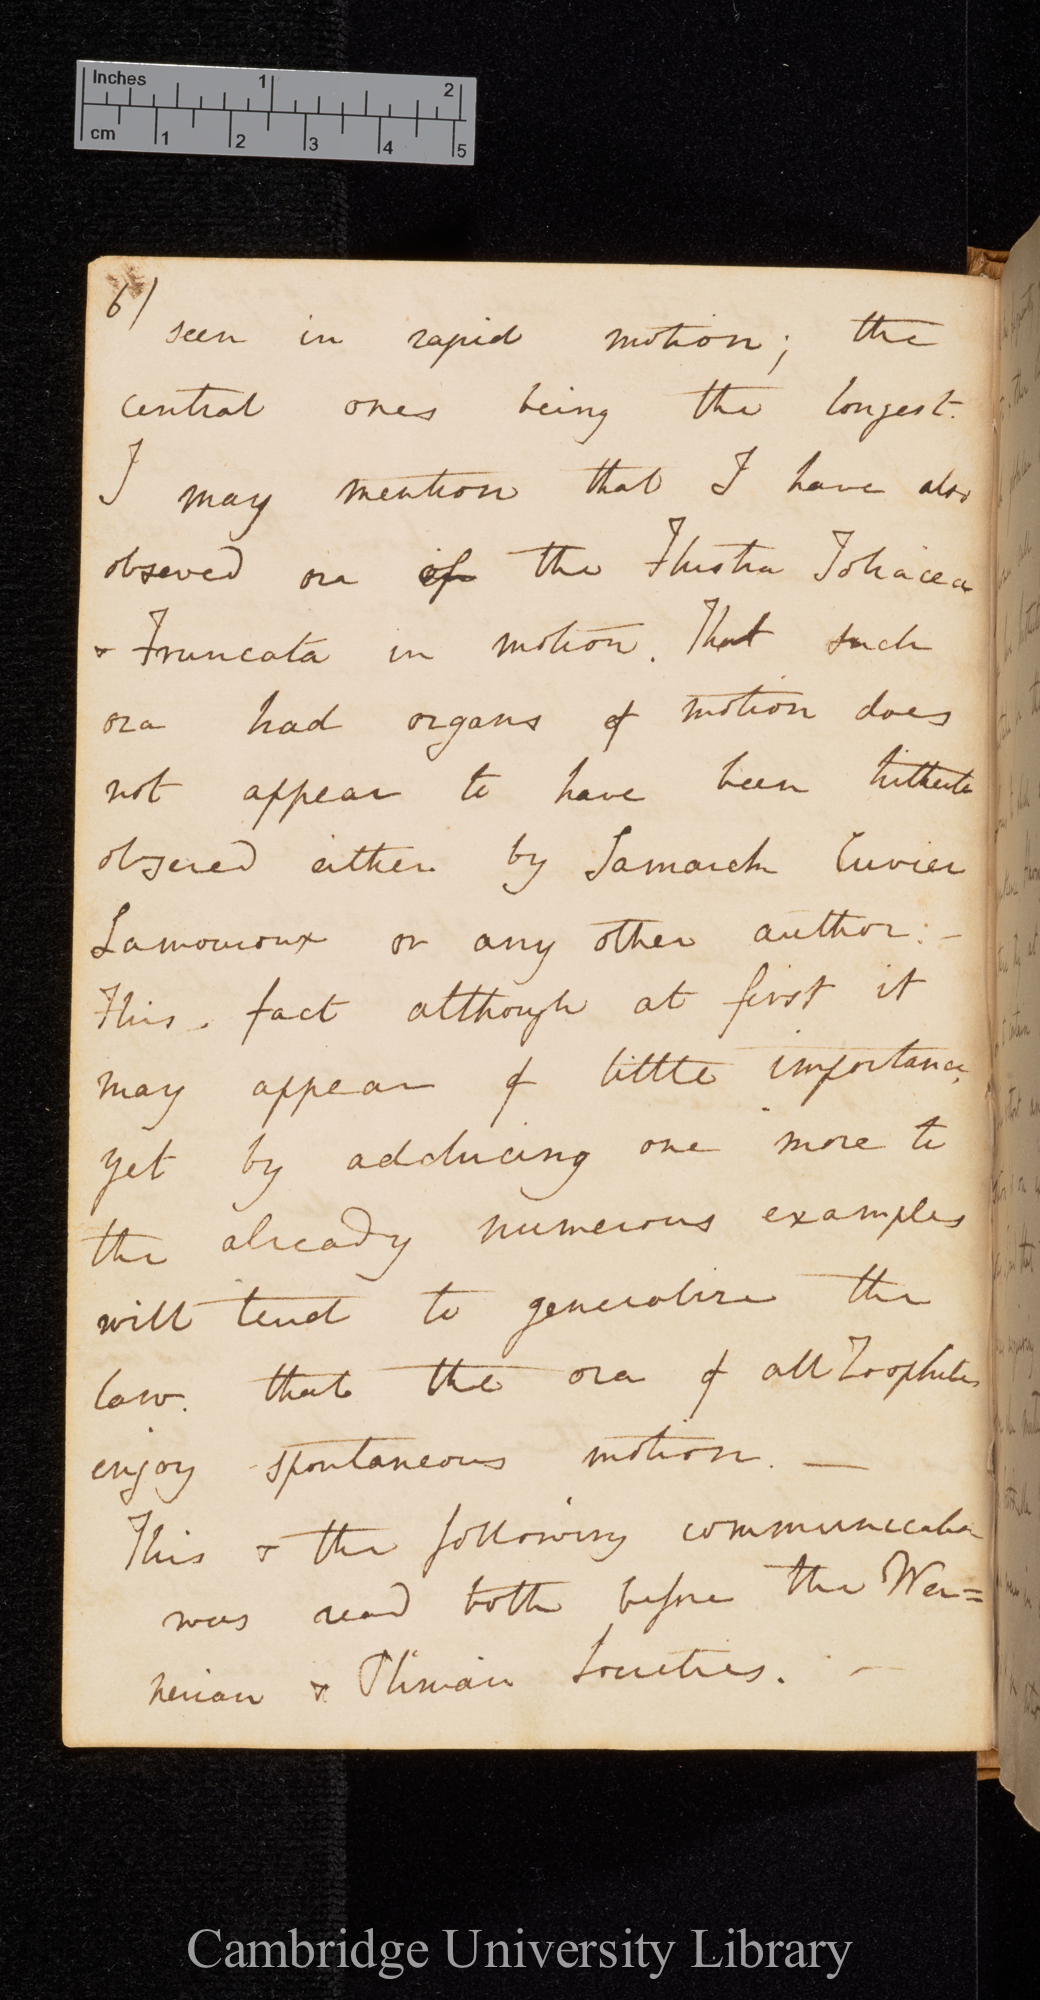 Inches 1 2
cm 1 2 3 4 5
6/
seen in rapid motion; the
central ones being the longest.
I may mention that I have also
obseved ova of the Flustra Foliacea
& Truncata in motion. That such
ova had organs of motion does
not appear to have been hitherto
obseved either by Lamarck Cuvier
Lamouroux or any other author:—
This. fact although at first it
may appear of little importance,
yet by adducing one more to
the already numerous examples
will tend to generalise the
law. that the ova of all Zoophites
enjoy spontaneous motion. —
This & the following communication
was read both before the Wer=
nerian & Plinian Societies. —
Cambridge University Library